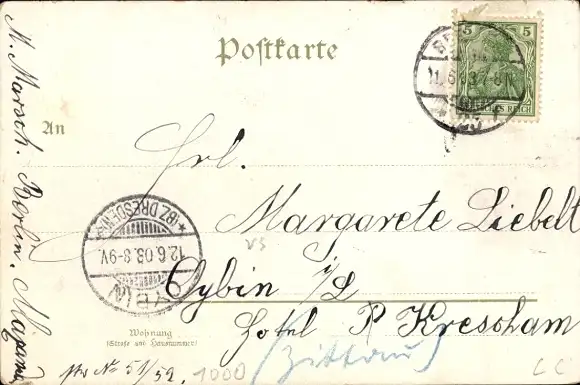 Postkarte
5
DEUTSCHES REICH
BE
11.6.03.7-8N.
An
Frl.
Margarete Liebelt
Oybin i/L
Hotel P Kretscham
(Zittau)
OYBIN
12.6.03.8-9V.
*(BZ.DRESDEN)*
Wohnung
(Straße und Hausnummer)
N. Marsch. Berlin.
No 51/52.
1000
VS
CC